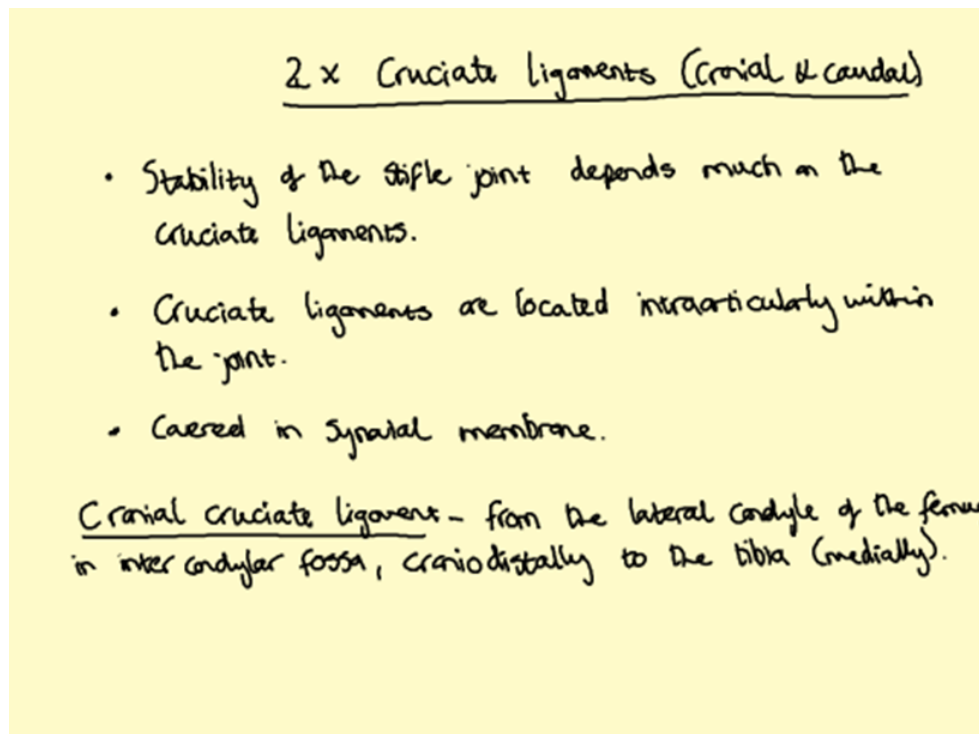 2 x Cruciate ligaments (Cranial & caudal)
• Stability of the stifle joint depends much on the
cruciate ligaments.
• Cruciate ligaments are located intraarticularly within
the joint.
• Covered in synovial membrane.
Cranial cruciate ligament - from the lateral condyle of the femu
in inter condylar fossa, craniodistally to the tibia (medially).